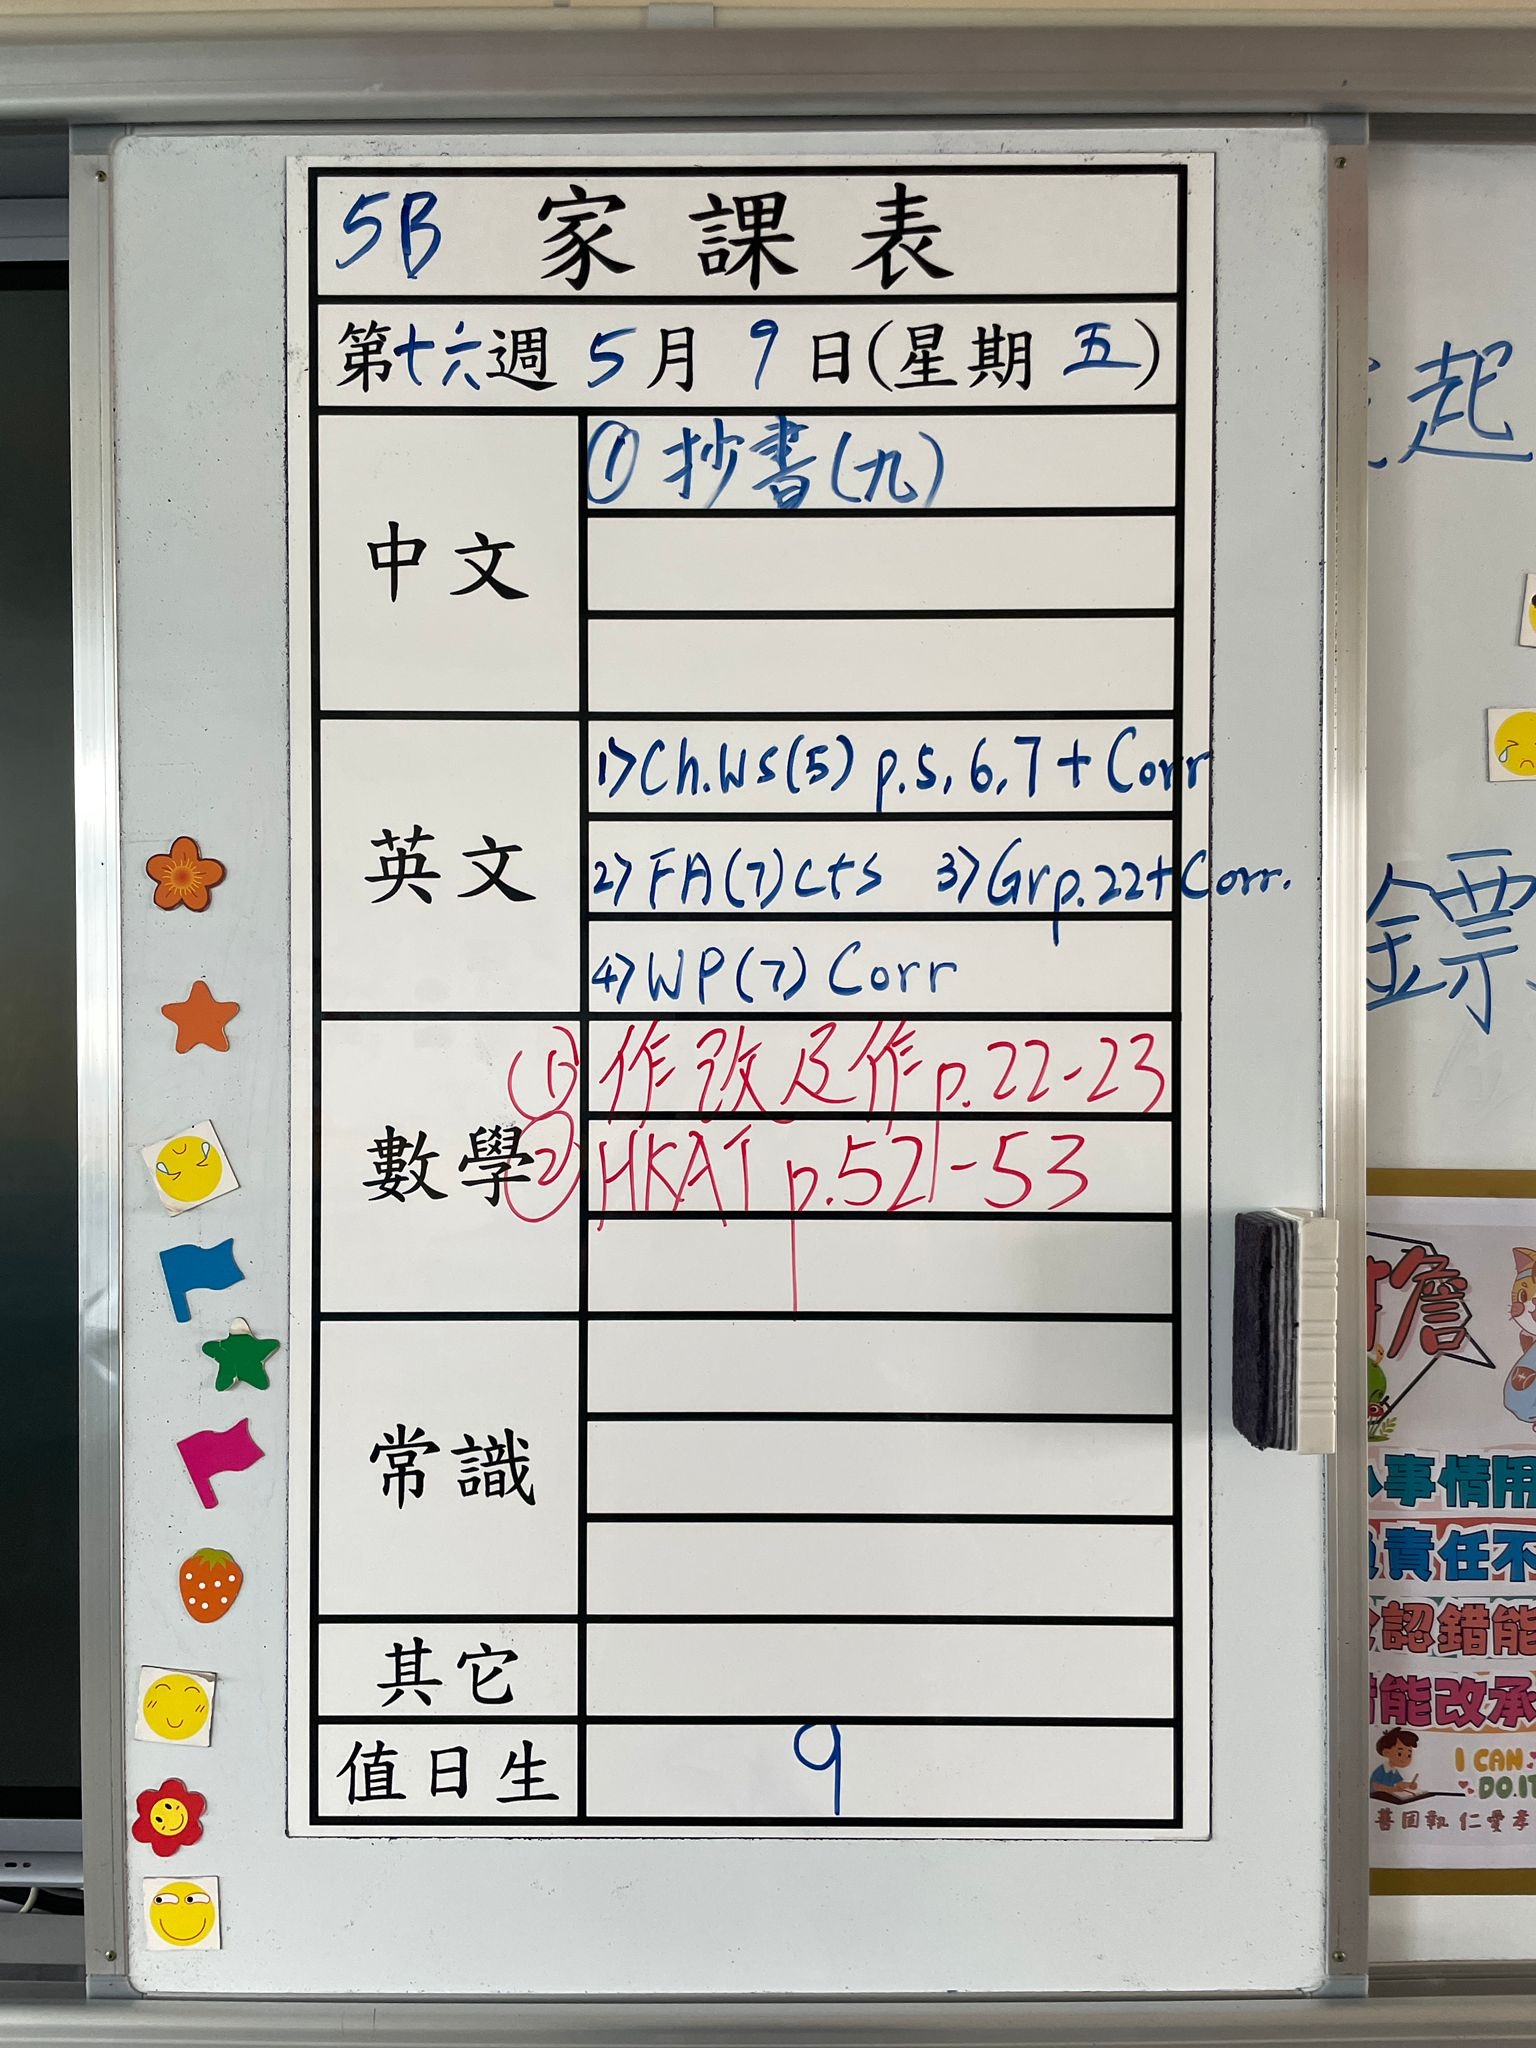 5B 家課表
第十六週 5月9日(星期五)
中文
① 抄書(九)
英文
1> Ch.WS(5) p.5, 6, 7 + Corr
2> FA(7) cts 3> Gr p.22 + Corr.
4> WP(7) Corr
數學
(1) 作改及作 p.22-23
(2) HKAT p.52-53
常識
其它
值日生
9
起
鏢
事情用
責任不
認錯能
能改承
I CAN
DO.IT
仁愛孝